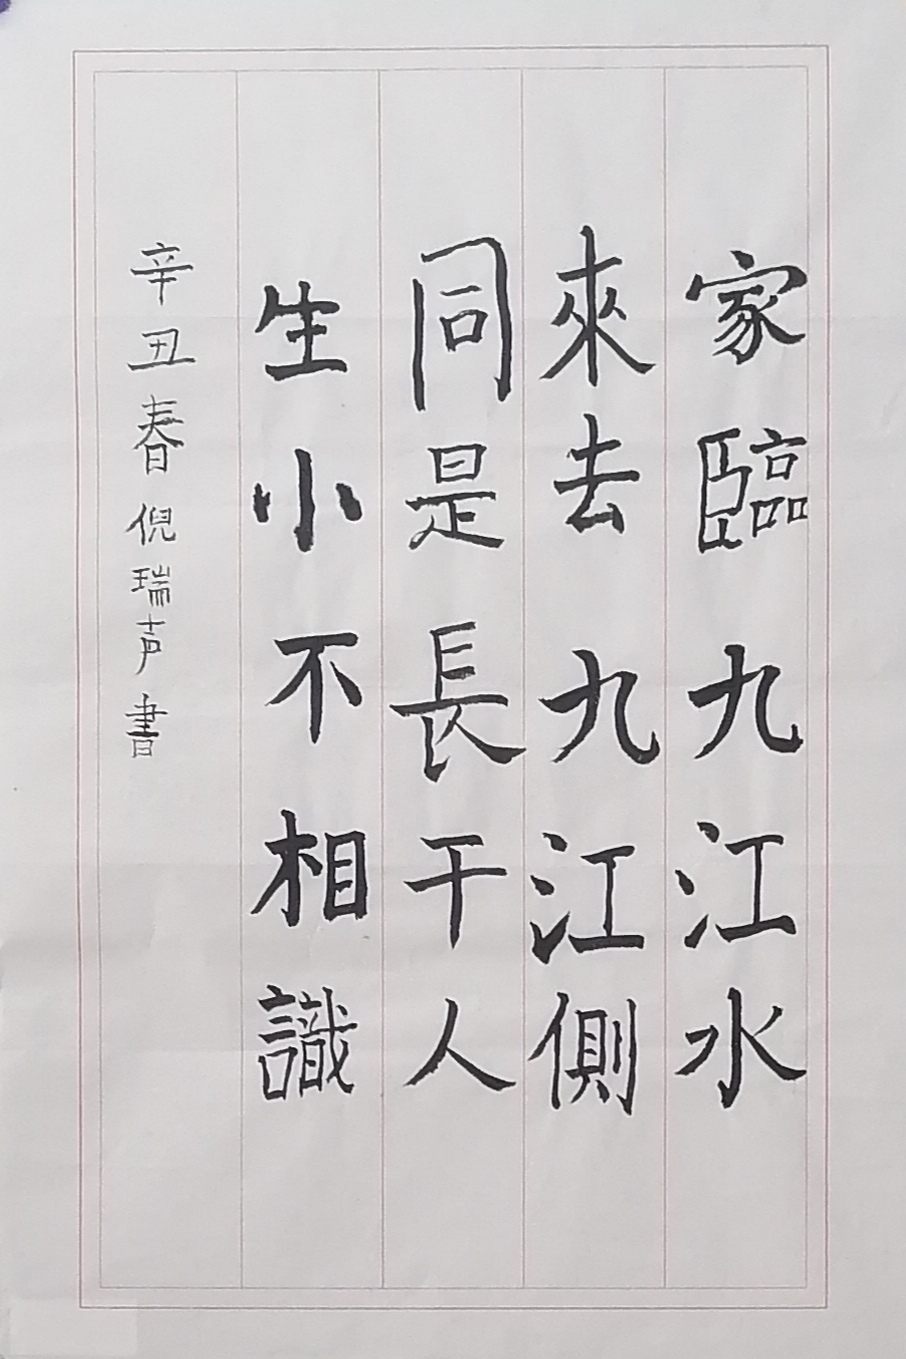 家臨九江水
來去九江側
同是長干人
生小不相識
辛丑春倪瑞声書